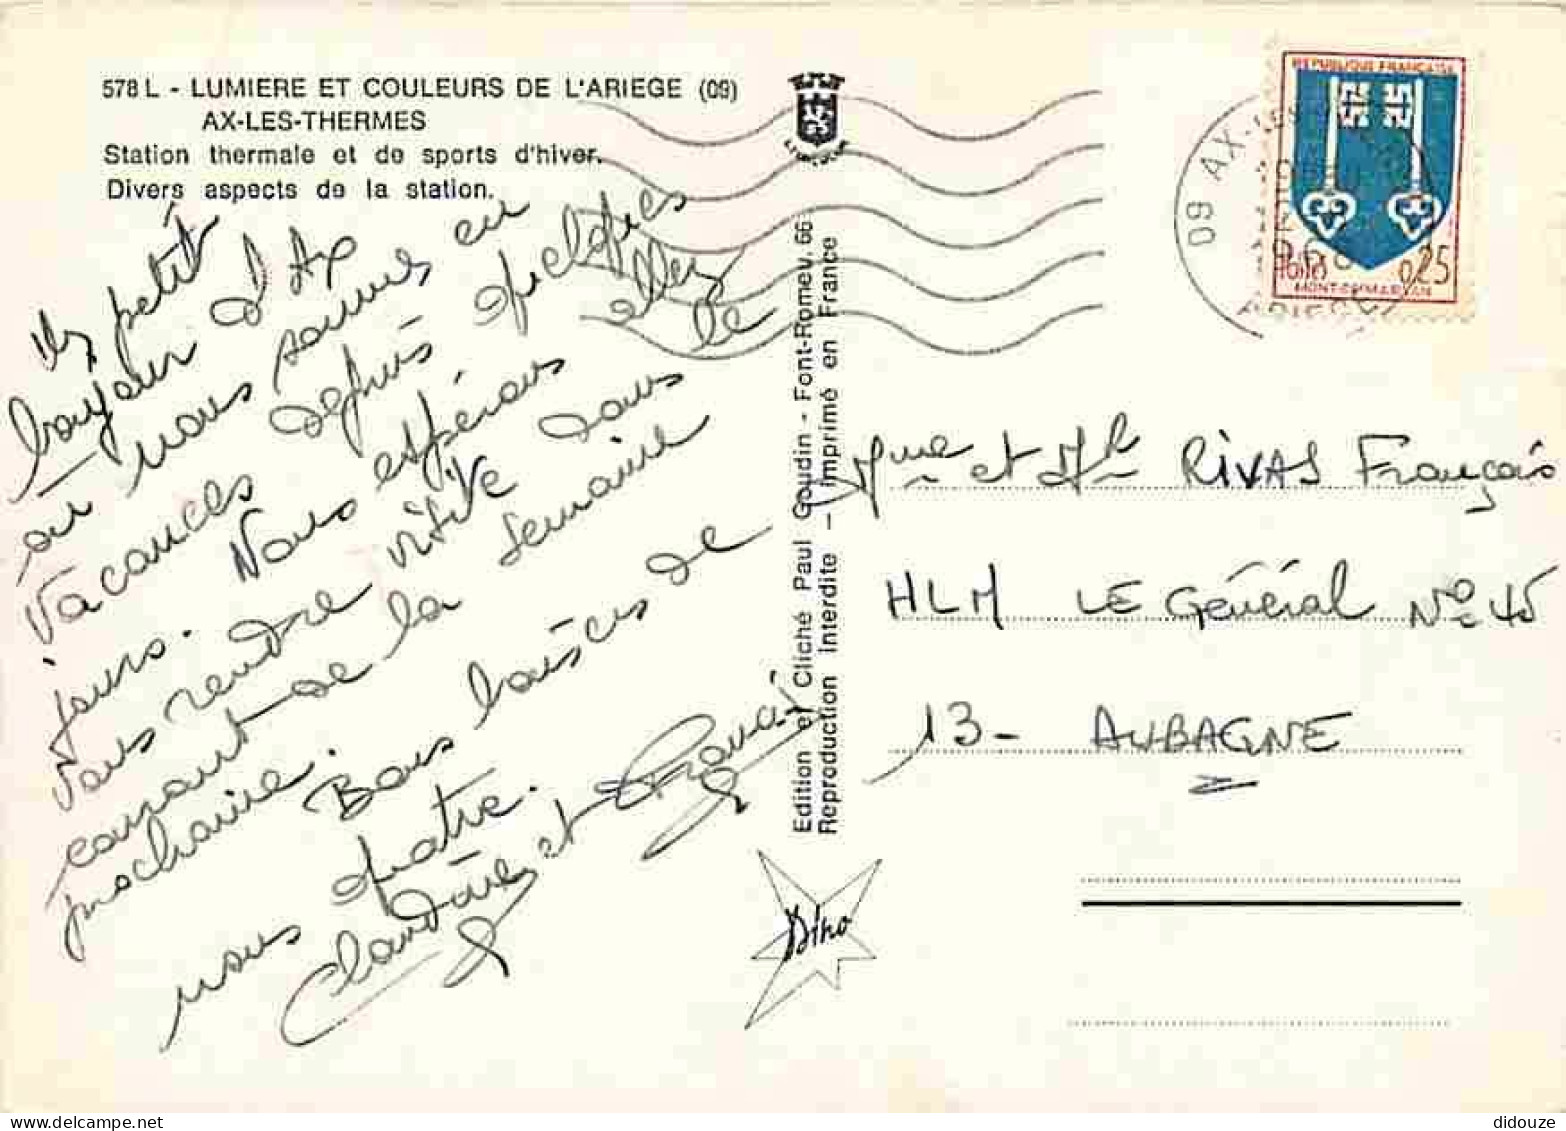 578 L - LUMIERE ET COULEURS DE L'ARIEGE (09)
AX-LES-THERMES
Station thermale et de sports d'hiver.
Divers aspects de la station.
Un petit
bonjour d'Ax
où nous sommes en
vacances depuis quelques
jours. Nous espérons allez
vous rendre visite dans le
courant de la semaine
prochaine.
Bons baisers de
nous quatre.
Claudine et
Edition et Cliché Paul Goudin - Font-Romeu. 66
Reproduction Interdite - Imprimé en France
Dino
REPUBLIQUE FRANÇAISE
0,25
MONT-DE-MARSAN
09 AX-LES
ARIEGE
Mme et Mr RIVAS Français
HLM LE Général No 45
13 - AUBAGNE
didouze